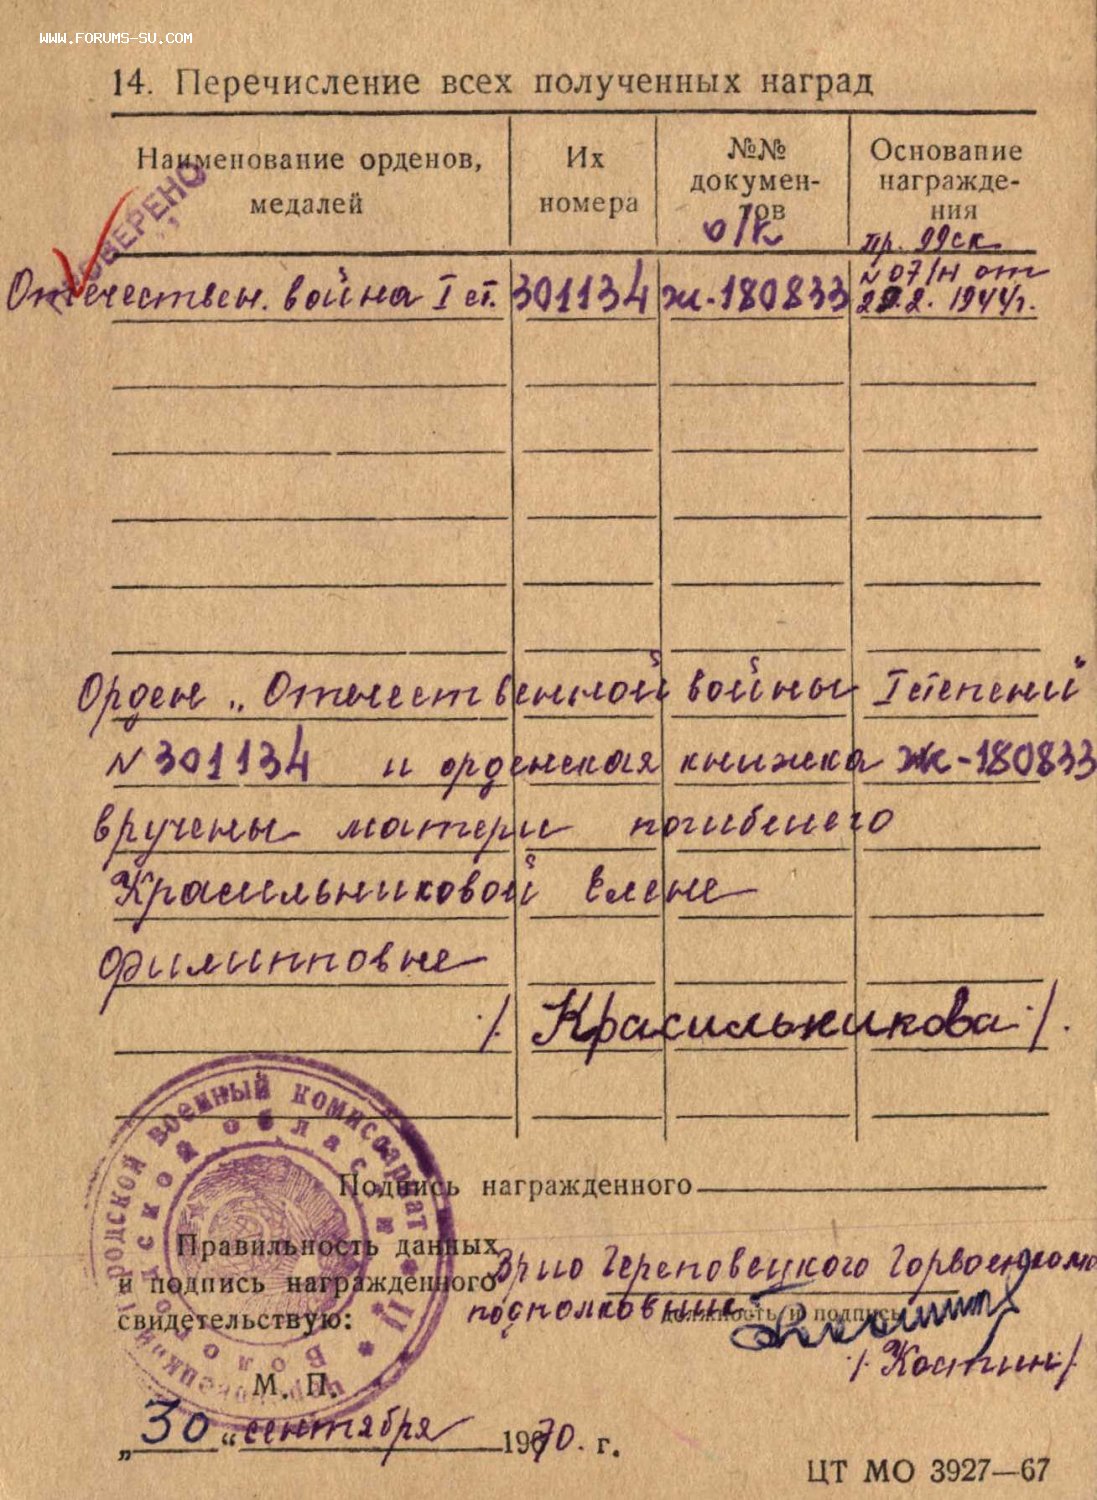 WWW.FORUMS-SU.COM
14. Перечисление всех полученных наград
Наименование орденов, медалей
Их номера
№№ докумен- тов
о/к
Основание награжде- ния
ПРОВЕРЕНО
Отечествен. война I ст. 301134 Ж-180833 пр. 99ск
N 07/н от
2.2. 1944г.
Орден „Отечественной войны I степени"
N 301134 и орденская книжка Ж-180833
вручены матери погибшего
Красильниковой Елене
Филипповне
/Красильникова/.
Подпись награжденного
Правильность данных
и подпись награжденного
свидетельствую:
Врио Череповецкого Горвоенкома
подполковник
должность и подпись
/Костин/
М. П.
городской военный комиссариат
Вологодской области
„30" сентября 1970. г.
ЦТ МО 3927—67